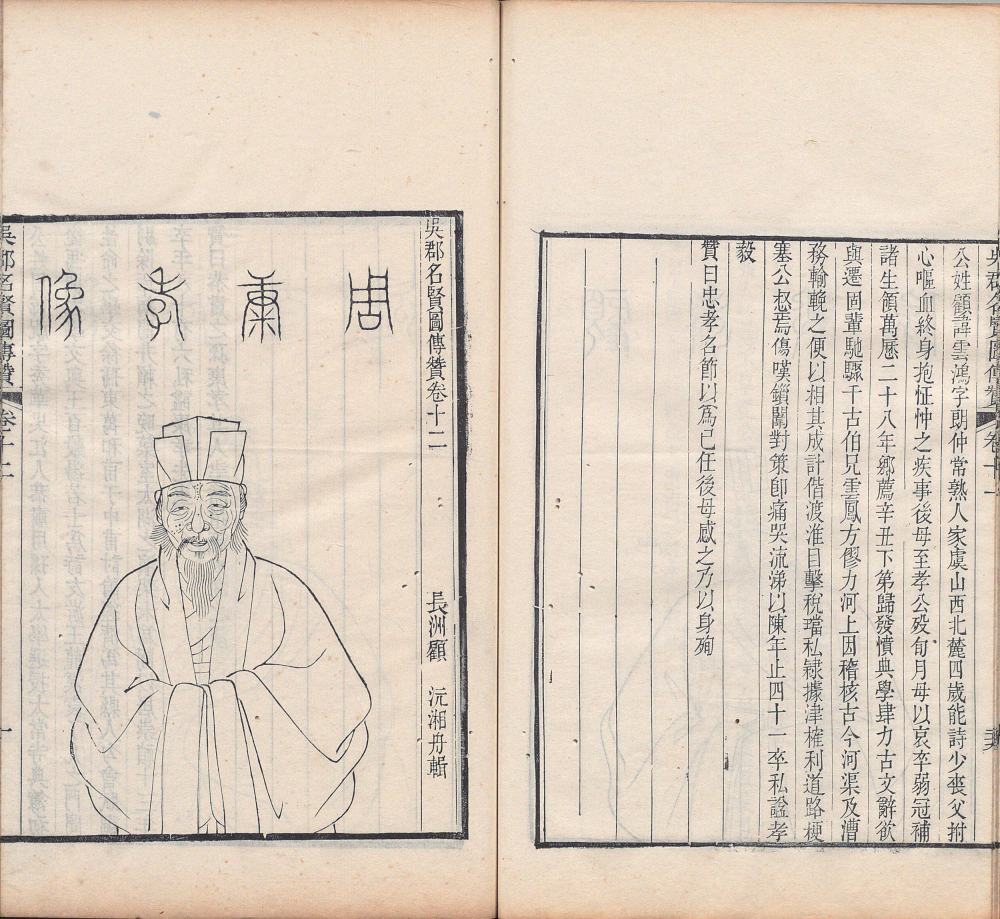 吳郡名賢圖傳贊 卷十一
公姓顧諱雲鴻字朗仲常熟人家虞山西北麓四歲能詩少喪父拊
心嘔血終身抱怔忡之疾事後母至孝公歿旬月母以哀卒弱冠補
諸生領萬曆二十八年鄉薦辛丑下第歸發憤典學肆力古文辭欲
與遷固輩馳驟千古伯兄雲鳳方僇力河上因稽核古今河渠及漕
務輸輓之便以相其成計偕渡淮目擊稅璫私隸據津榷利道路梗
塞公惄焉傷嘆鎖闈對策卽痛哭流涕以陳年止四十一卒私謚孝
毅
贊曰忠孝名節以爲己任後母感之乃以身殉
吳郡名賢圖傳贊卷十二
長洲顧 沅湘舟輯
周 肅 孝 像
吳郡名賢圖傳贊 卷十二 一